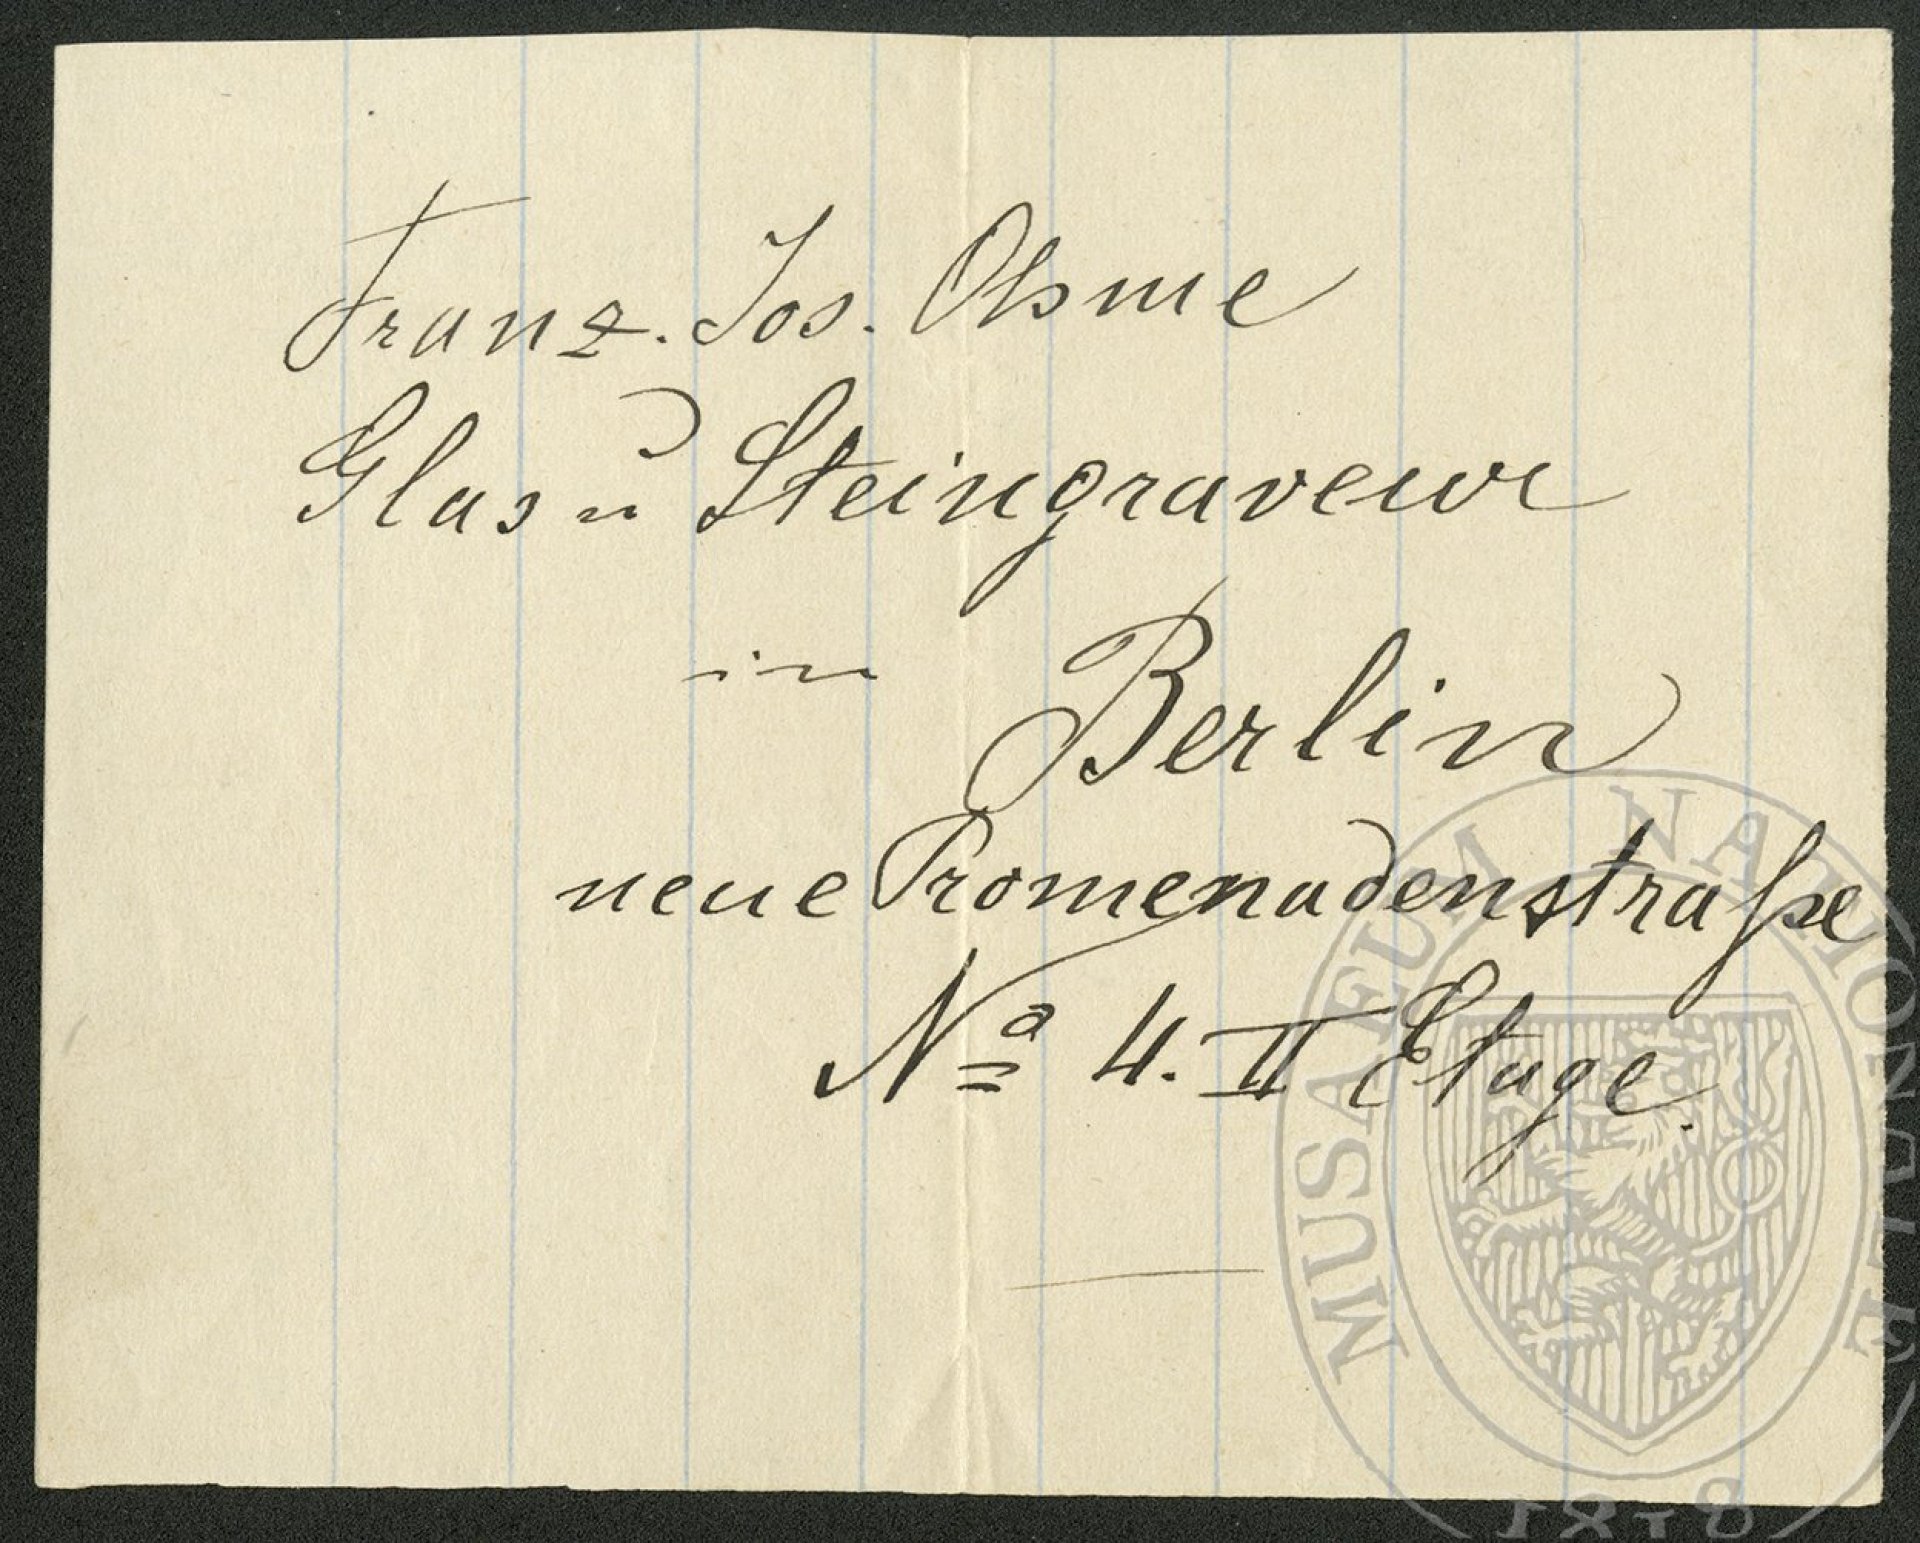 Franz. Jos. Ohme
Glas u Steingraveur
in
Berlin
neue Promenadenstraße
Nº 4. II Etage.
MUSAEUM NATIONALE
1818